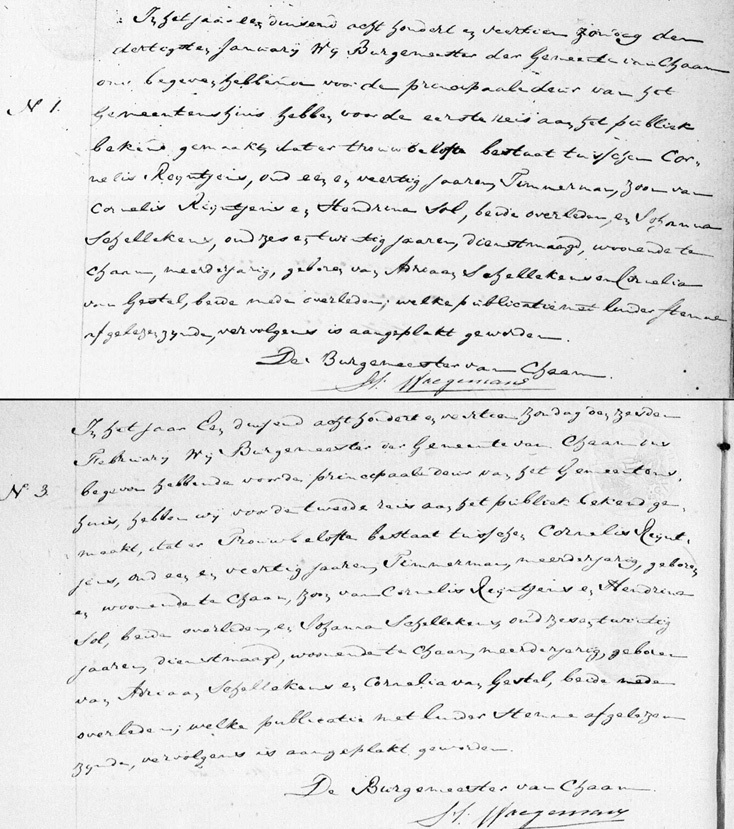 In het jaar een duisend acht hondert en veertien zondag den
dertigsten January Wij Burgemeester der Gemeente van Chaam
ons begeven hebbende voor de principaale deur van het
N 1.
Gemeentenshuis hebben voor de eerste reis aan het publiek
bekend gemaakt, dat er trouwbelofte bestaat tusschen Cor-
nelis Reijntjens, oud een en veertig jaaren, Timmerman, zoon van
Cornelis Reijntjens en Hendrina Sol, beide overleden, en Johanna
Schellekens, oud zes en twintig jaaren, dienstmaagd, woonende te
Chaam, meerderjarig, geboren van Adriaan Schellekens en Cornelia
van Gestel, beide mede overleden; welke publicatie met luider stemme
afgelezen zynde, vervolgens is aangeplakt geworden.
De Burgemeester van Chaam.
In het jaar Een duisend acht hondert en veertien zondag den zesden
February Wij Burgemeester der Gemeente van Chaam ons
begeven hebbende voor de principaale deur van het Gemeentens,
N 3.
huis, hebben wij voor de tweede reis aan het publiek bekend ge-
maakt, dat er Trouwbelofte bestaat tusschen Cornelis Reijnt-
jens, oud een en veertig jaaren, Timmerman, meerderjarig, geboren
en woonende te Chaam, zoon van Cornelis Reijntjens en Hendrina
Sol, beide overleden, en Johanna Schellekens oud zes en twintig
jaaren, dienstmaagd, woonende te Chaam, meerderjarig, geboren
van Adriaan Schellekens en Cornelia van Gestel, beide mede
overleden; welke publicatie met luider stemme afgelezen
zynde, vervolgens is aangeplakt geworden.
De Burgemeester van Chaam.